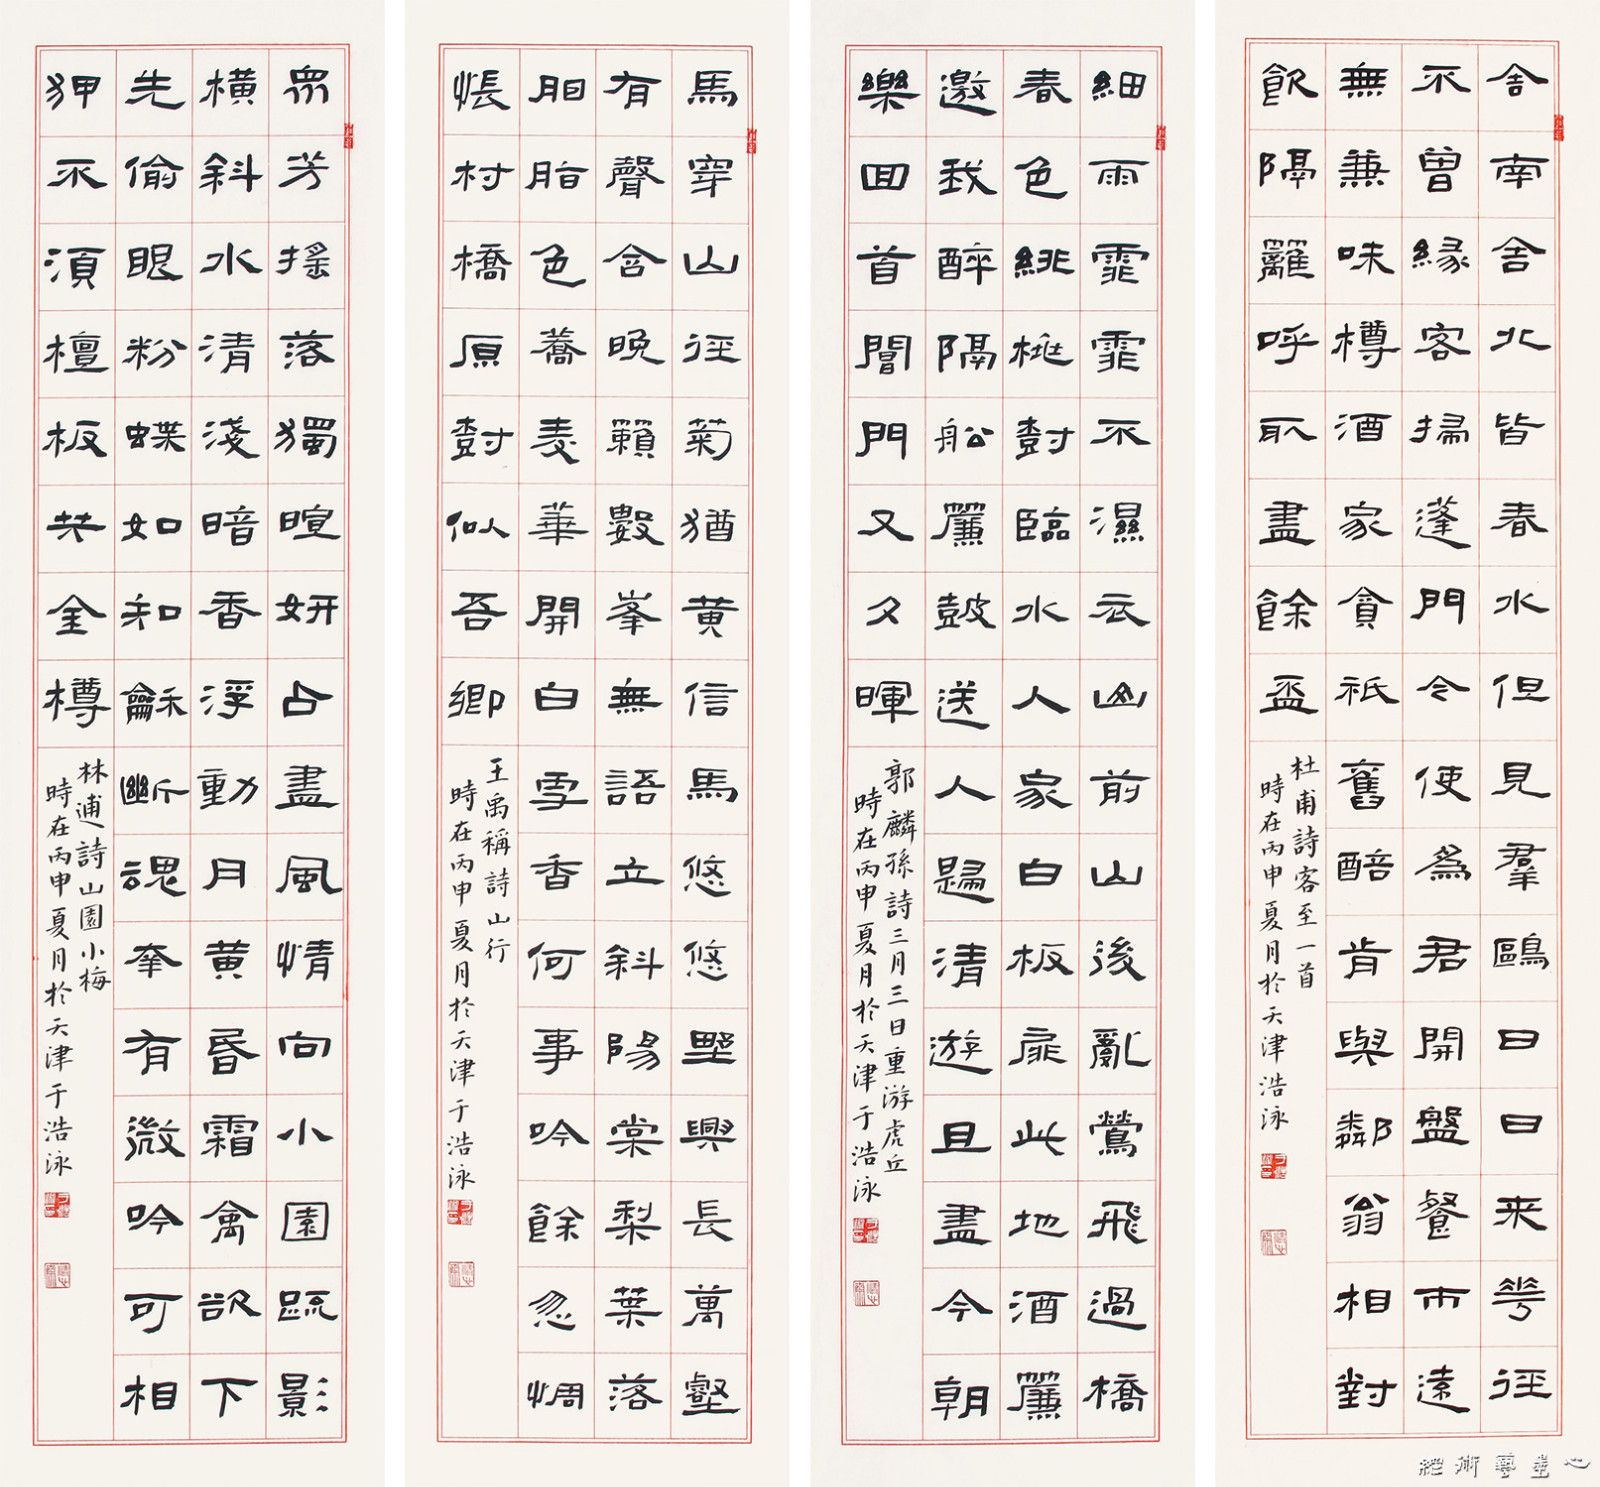 舍南舍北皆春水但見羣鷗日日来花徑
不曾緣客掃蓬門今使為君開盤餐市遠
無兼味樽酒家貧衹舊醅肯與鄰翁相對
飲隔籬呼取盡餘盃
杜甫詩客至一首
時在丙申夏月於天津浩泳
細雨霏霏不濕衣山前山後亂鶯飛過橋
春色緋桃對臨水人家白板扉此地酒簾
邀我醉隔船簾鼓送人歸清游且盡今朝
樂回首閶門又夕暉
郭麟孫詩三月三日重游虎丘
時在丙申夏月於天津于浩泳
馬穿山徑菊猶黄信馬悠悠野興長萬壑
有聲含晚籟數峯無語立斜陽棠梨葉落
胭脂色蕎麦華開白雪香何事吟餘忽惆
悵村橋原對似吾鄉
王禹稱詩山行
時在丙申夏月於天津于浩泳
衆芳摇落獨暄妍占盡風情向小園疏影
横斜水清淺暗香浮動月黄昏霜禽欲下
先偷眼粉蝶如知龢斷魂幸有微吟可相
狎不須檀板共金樽
林逋詩山園小梅
時在丙申夏月於天津于浩泳